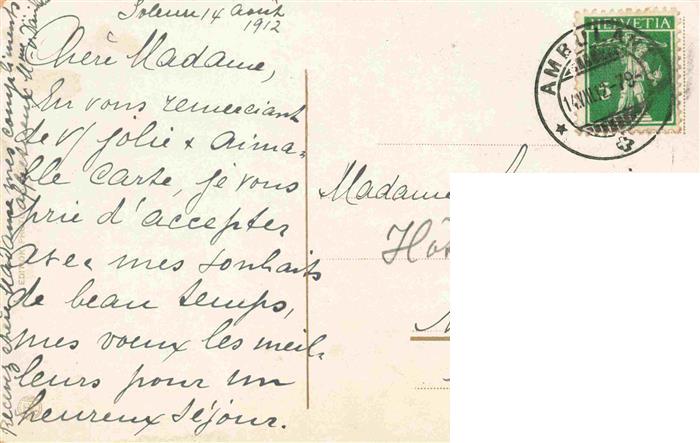 Soleure 14 Août
1912
Chère Madame,
En vous remerciant
de v/ jolie & aima-
ble carte, je vous
prie d'accepter
avec mes souhaits
de beau temps,
mes voeux les meil-
leurs pour un
heureux séjour.
Recevez chère Madame mes compliments
Madame
Hôt
HELVETIA
AMBULANT